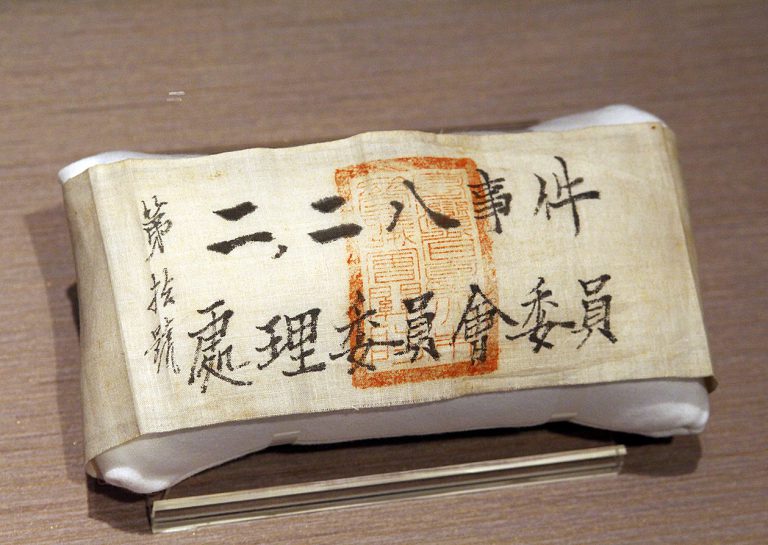 第拾號
二,二八事件
處理委員會委員